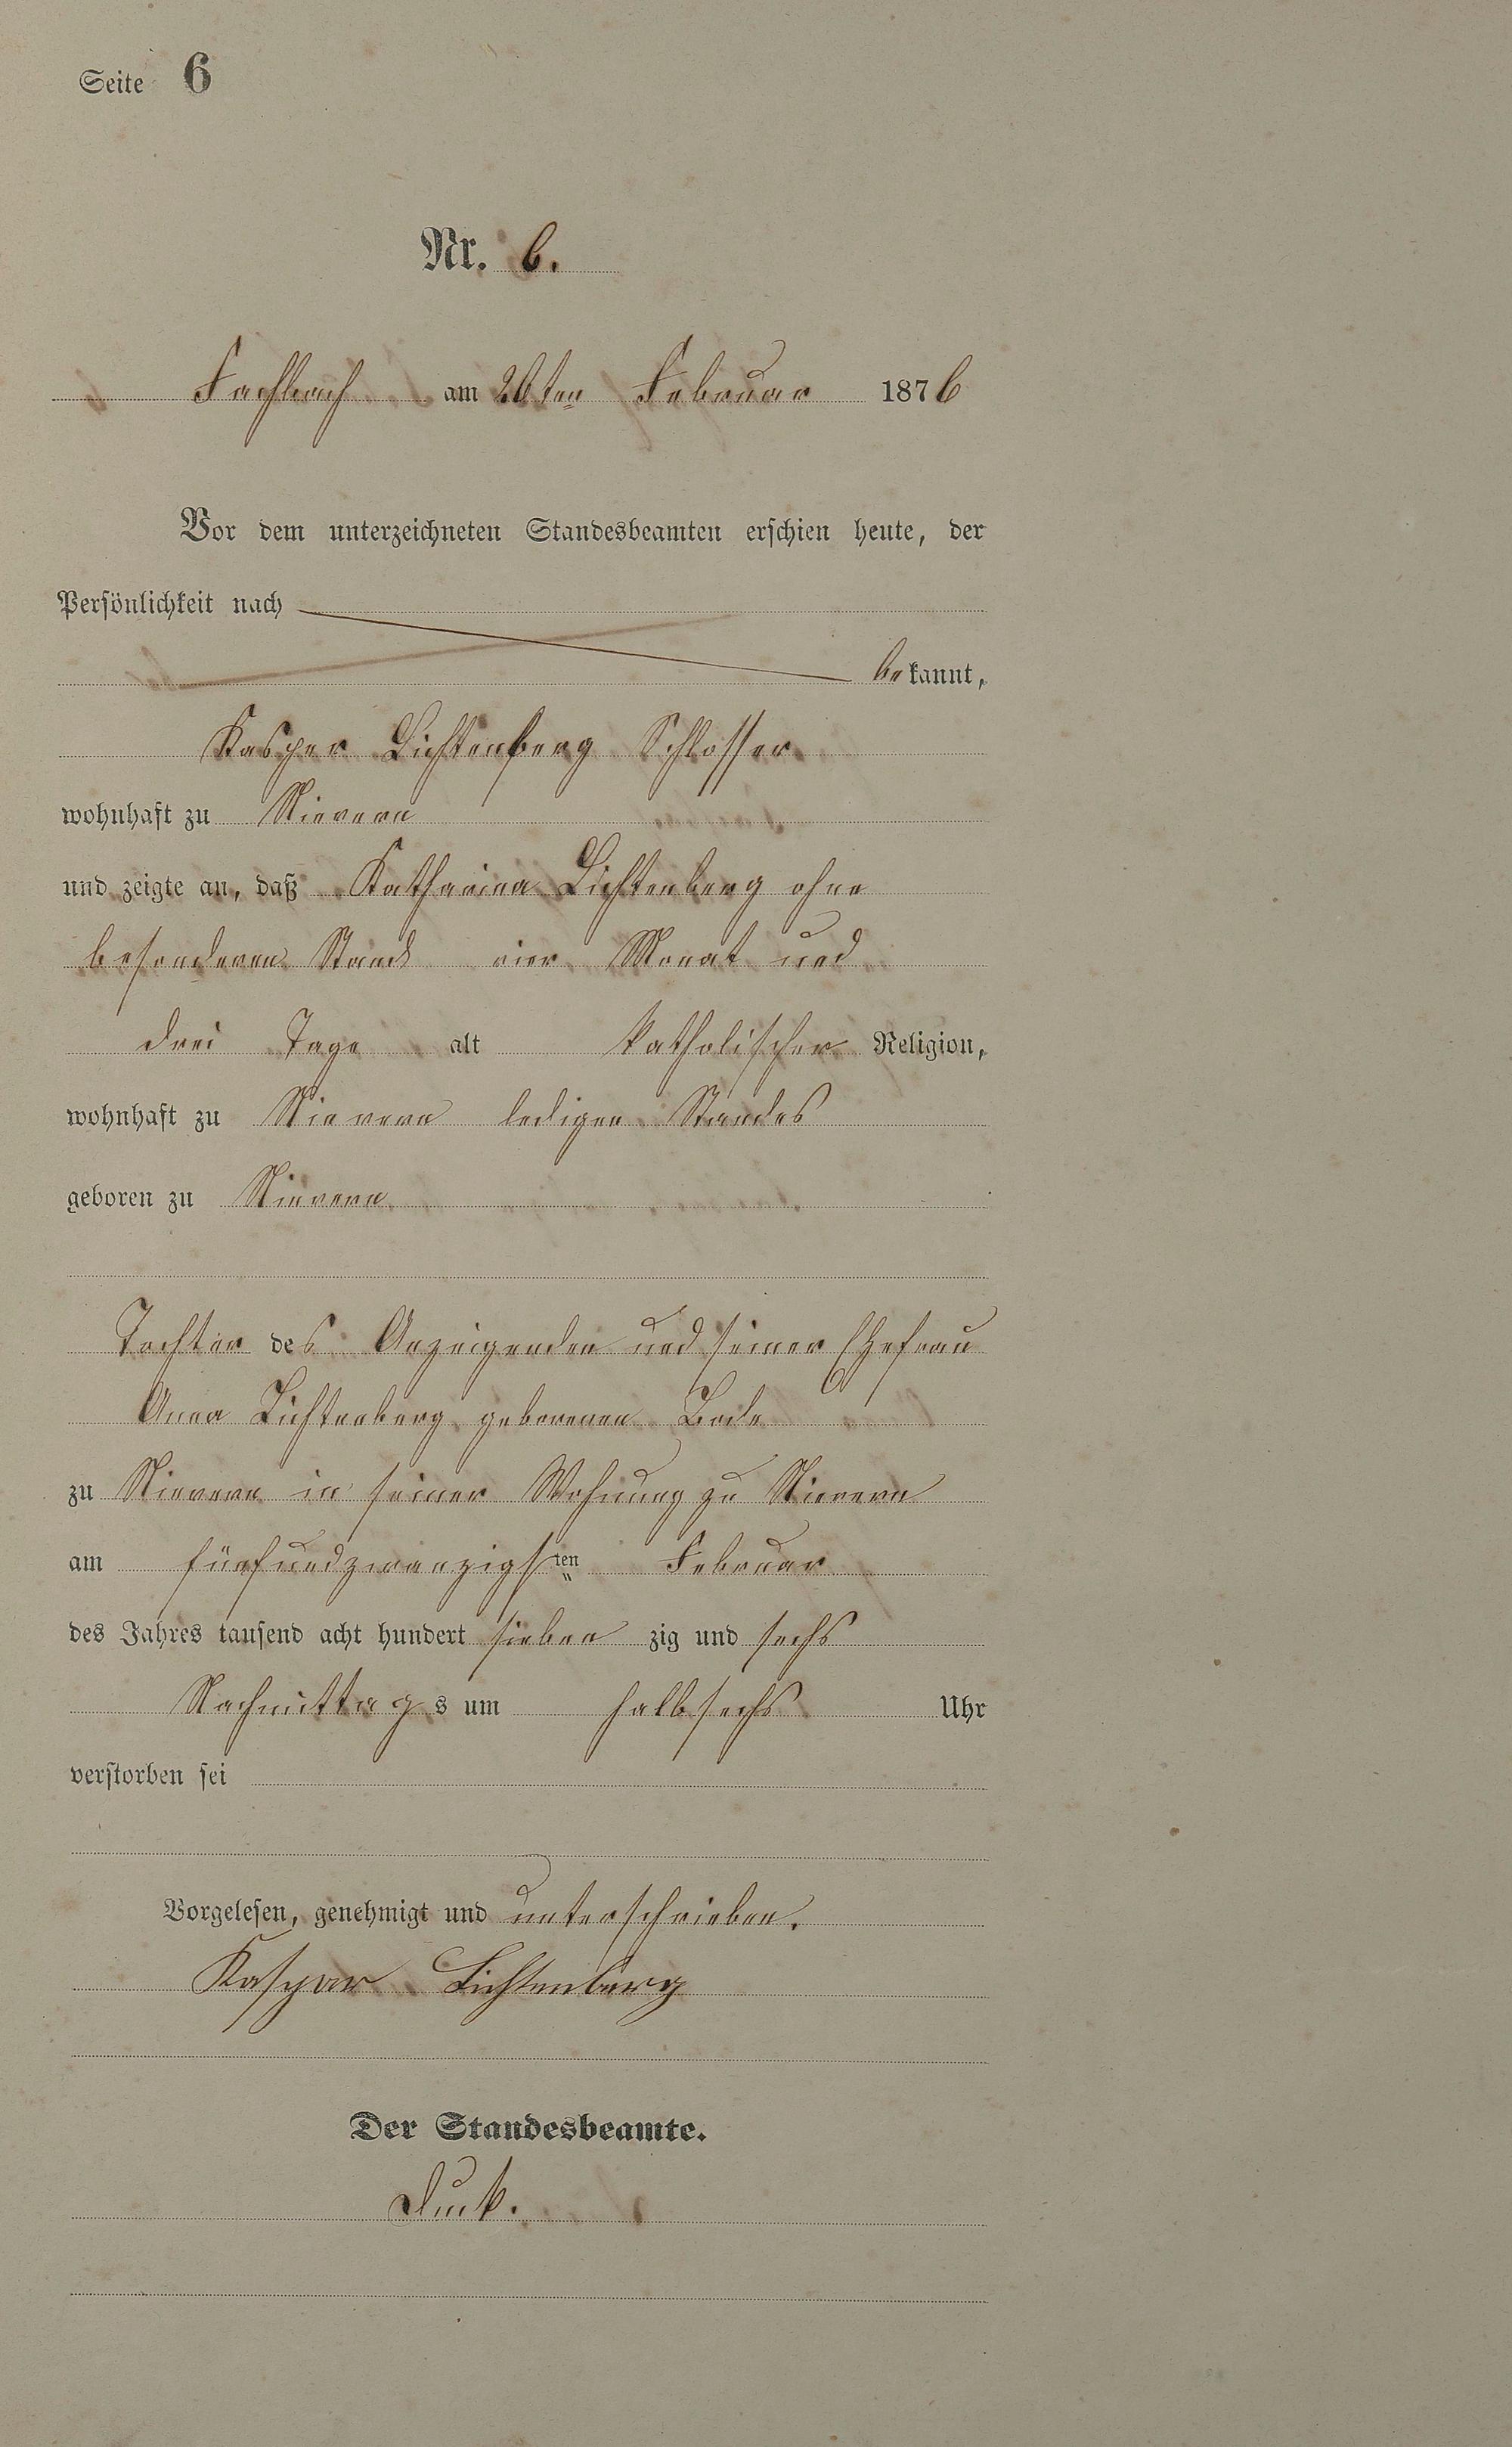 Seite 6
Nr. 6.
Fachbach am 26ten Februar 1876
Vor dem unterzeichneten Standesbeamten erschien heute, der
Persönlichkeit nach
bekannt,
Kasper Lichtenberg Schlosser
wohnhaft zu Nievern
und zeigte an, daß Katharina Lichtenberg ohne
besonderen Stand vier Monat und
drei Tage alt katholischer Religion,
wohnhaft zu Nievern ledigen Standes
geboren zu Nievern
Tochter des Anzeigenden und seiner Ehefrau
Anna Lichtenberg geborenen Bode
zu Nievern in seiner Wohnung zu Nievern
am fünfundzwanzigsten Februar
des Jahres tausend acht hundert siebenzig und sechs
Nachmittags um halb sechs Uhr
verstorben sei
Vorgelesen, genehmigt und unterschrieben.
Kaspar Lichtenberg
Der Standesbeamte.